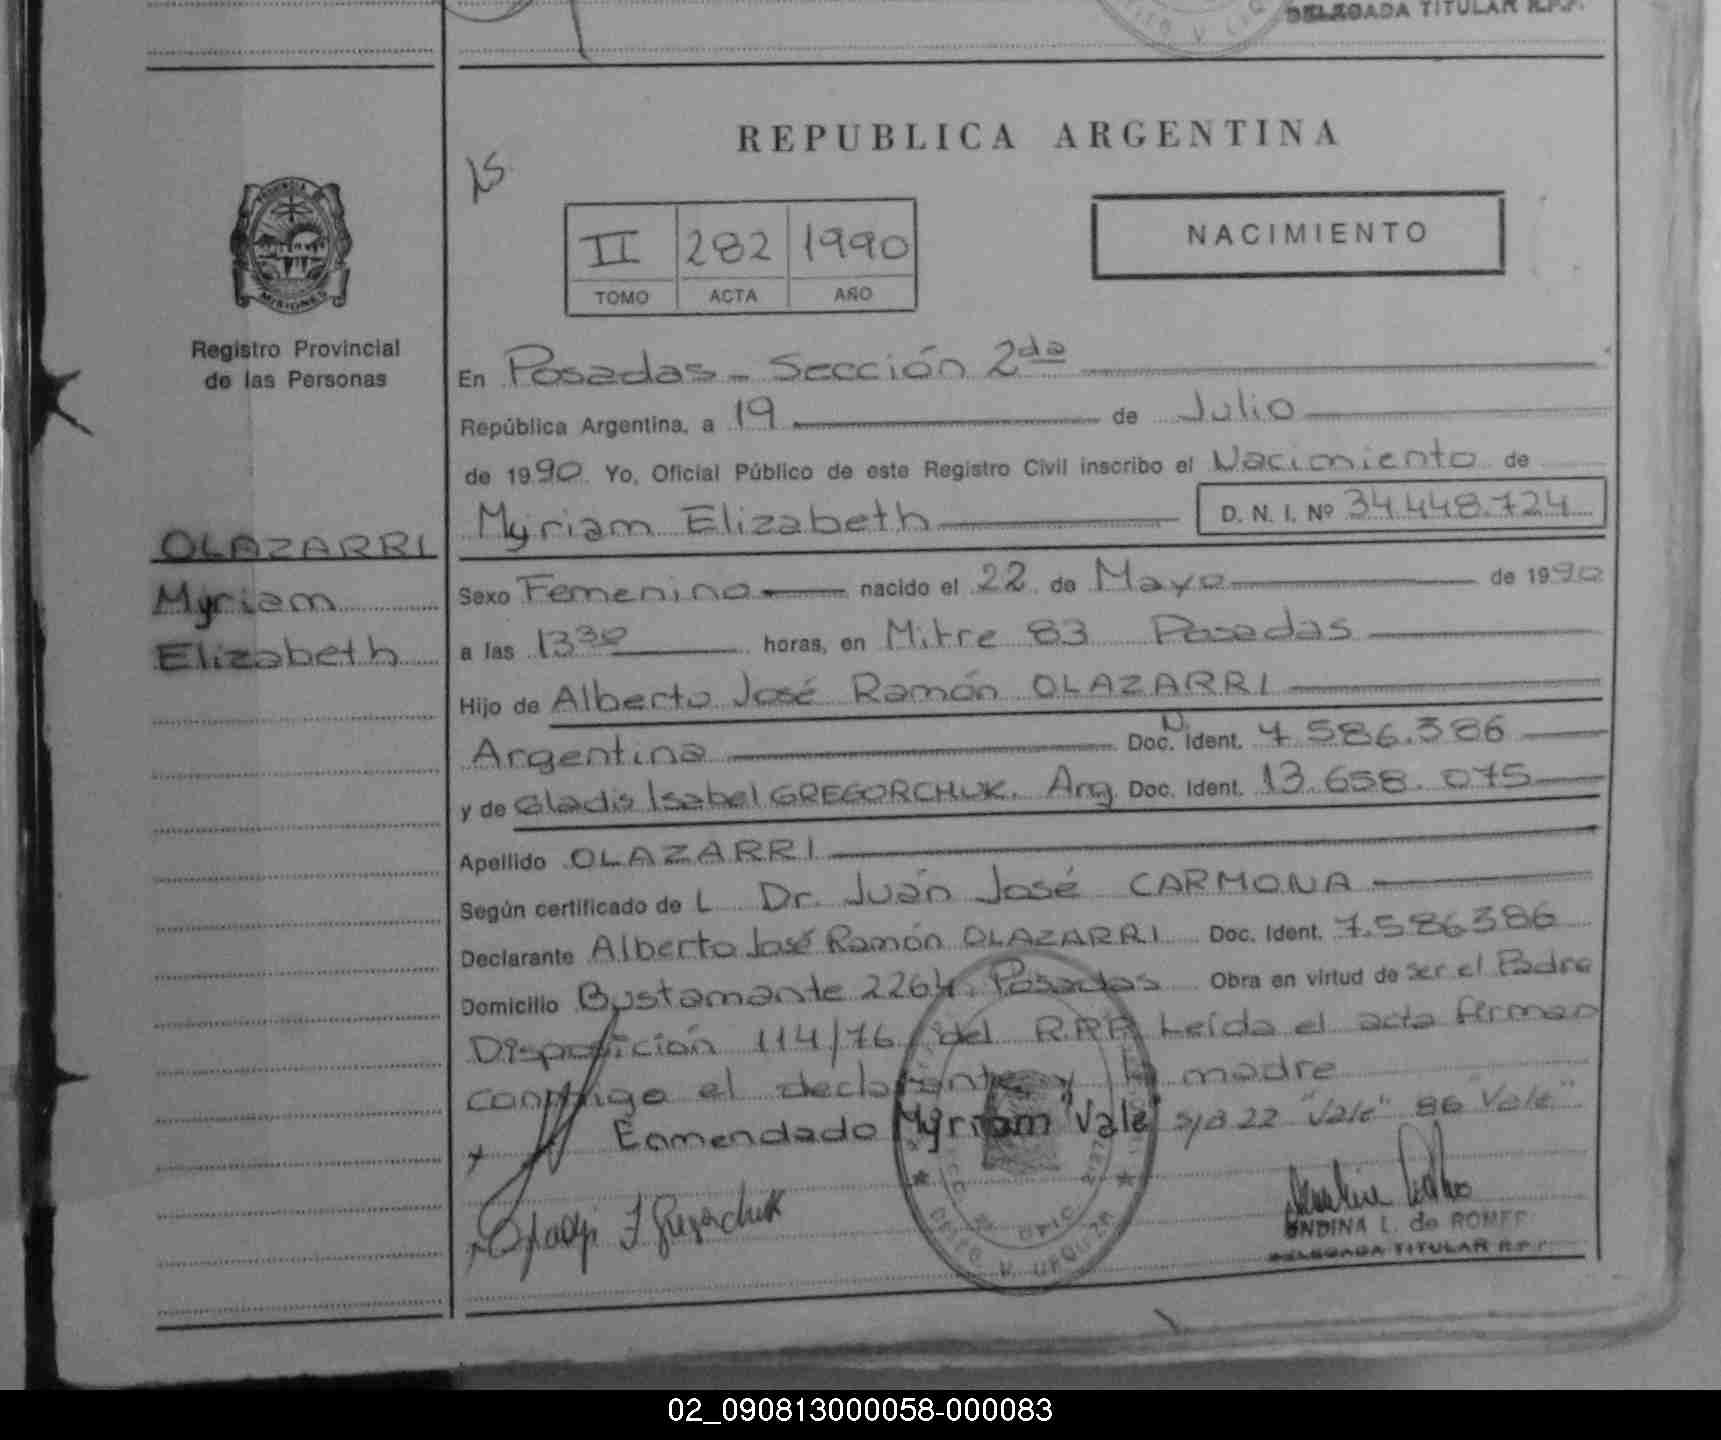 DELEGADA TITULAR R.P.P.
REPUBLICA ARGENTINA
15
II 282 1990
TOMO ACTA AÑO
NACIMIENTO
PROVINCIA
MISIONES
Registro Provincial
de las Personas
OLAZARRI
Myriam
Elizabeth
En Posadas - Sección 2da
República Argentina, a 19 de Julio
de 1990. Yo, Oficial Público de este Registro Civil inscribo el Nacimiento de
Myriam Elizabeth D. N. I. Nº 34.448.724
Sexo Femenino nacido el 22 de Mayo de 1990
a las 13 30 horas, en Mitre 83 Posadas
Hijo de Alberto José Ramón OLAZARRI
Argentina Doc. N. Ident. 7.586.386
y de Gladis Isabel GREGORCHUK. Arg. Doc. Ident. 13.658.075
Apellido OLAZARRI
Según certificado de L Dr. Juan José CARMONA
Declarante Alberto José Ramón OLAZARRI Doc. Ident. 7.586386
Domicilio Bustamante 2264. Posadas Obra en virtud de ser el Padre
Disposición 114/76 del R.R.P. Leída el acta firman
conmigo el declarante y la madre
Enmendado Myriam "Vale" s/a 22 "Vale" 86 "Vale"
ONDINA L. de ROMER
DELEGADA TITULAR R.P.P.
02_090813000058-000083